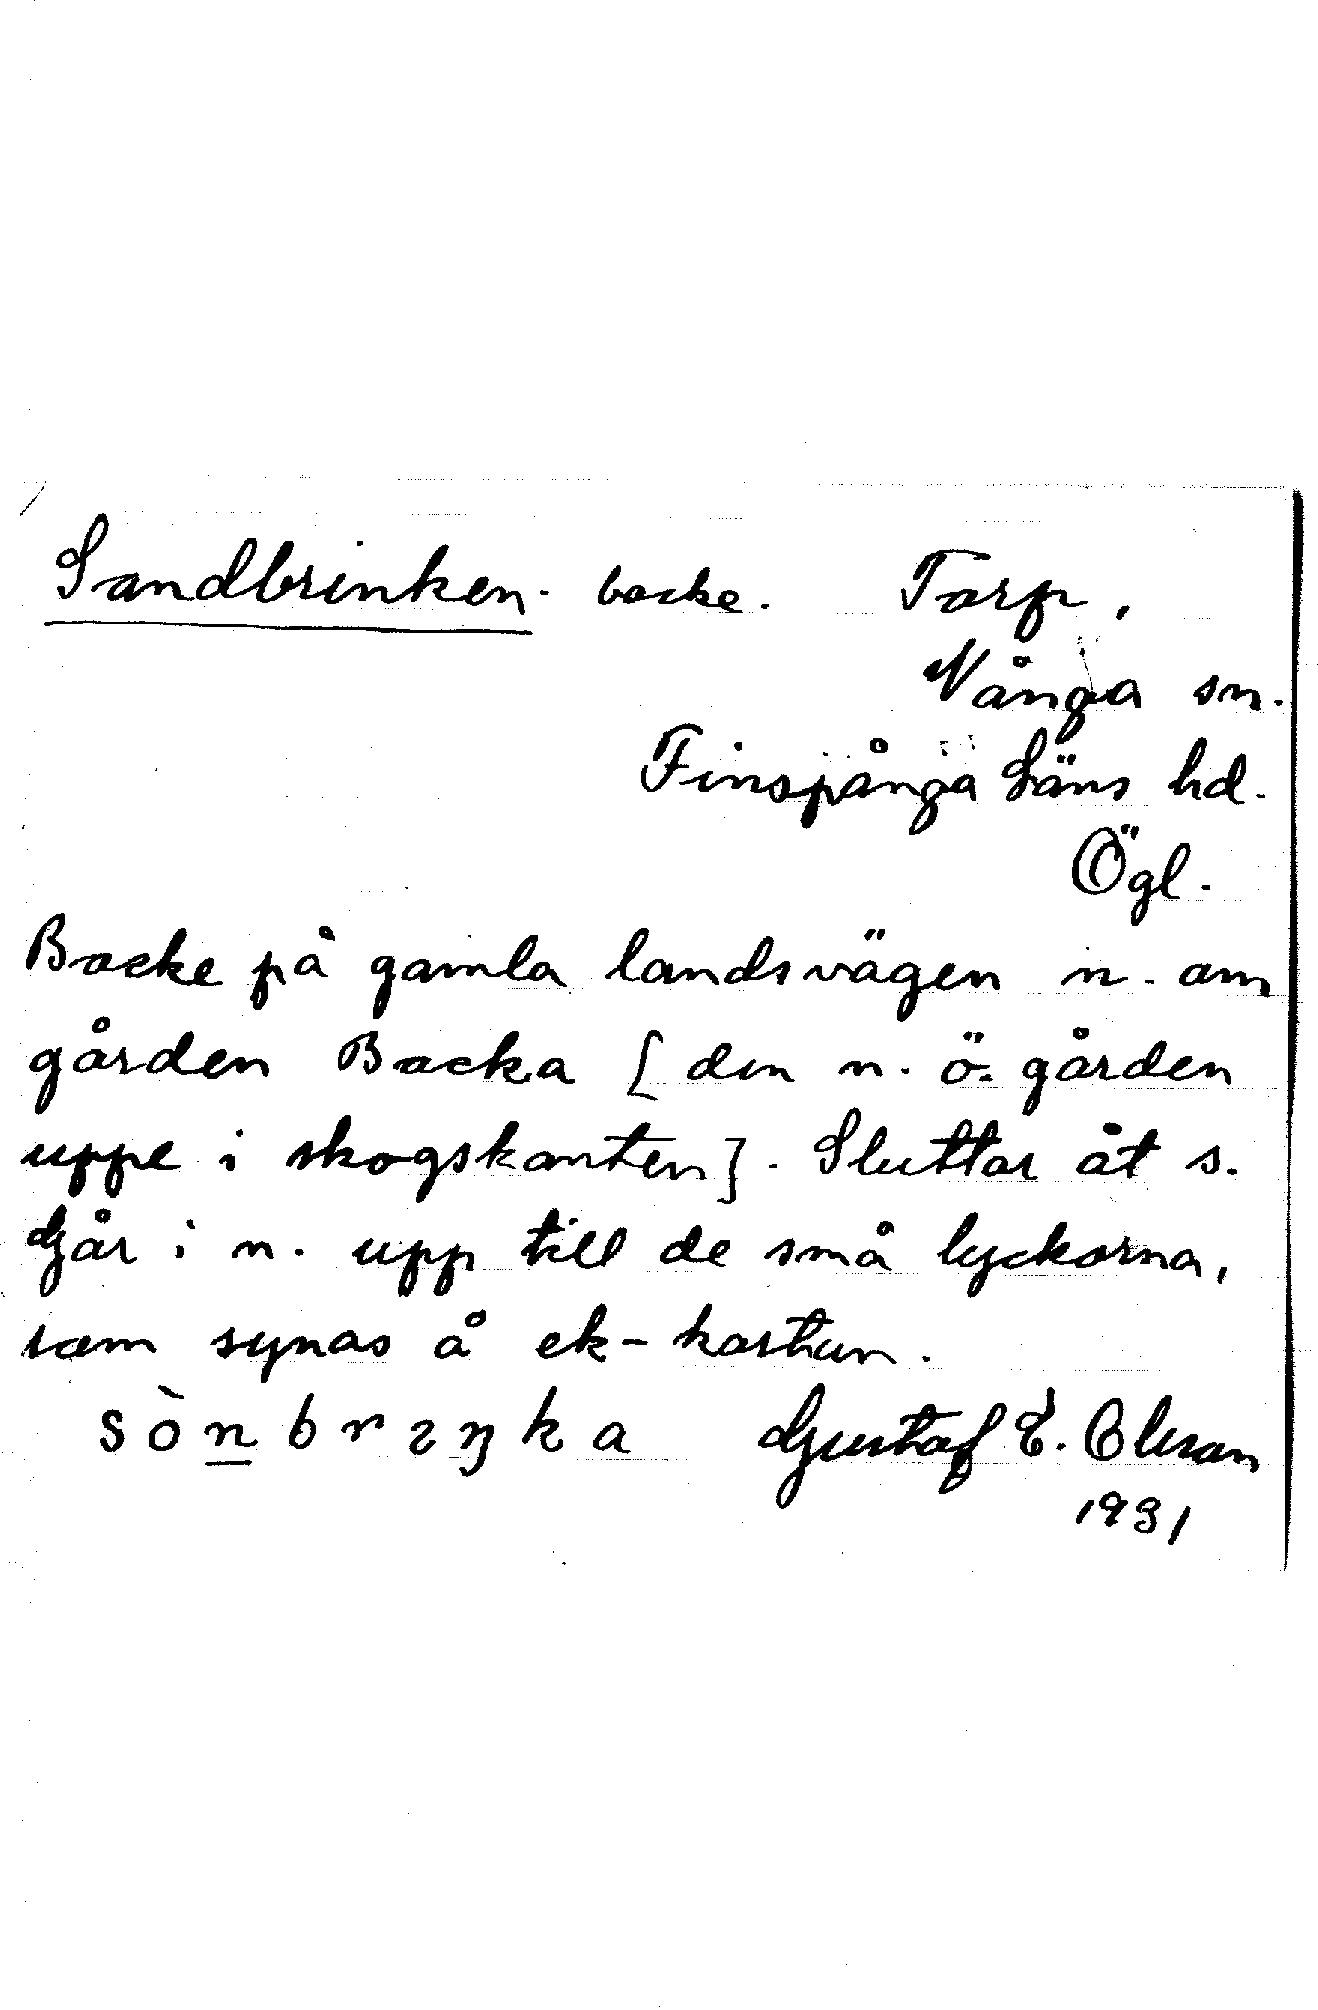 Sandbrinken. backe. Torp,
Vånga sn.
Finspånga Läns hd.
Ögl.
Backe på gamla landsvägen n. om
gården Backa [den n. ö. gården
uppe i skogskanten]. Sluttar åt s.
Går i n. upp till de små lyckorna,
som synas å ek-kartan.
sònbrıŋka Gustaf E. Olsson
1931